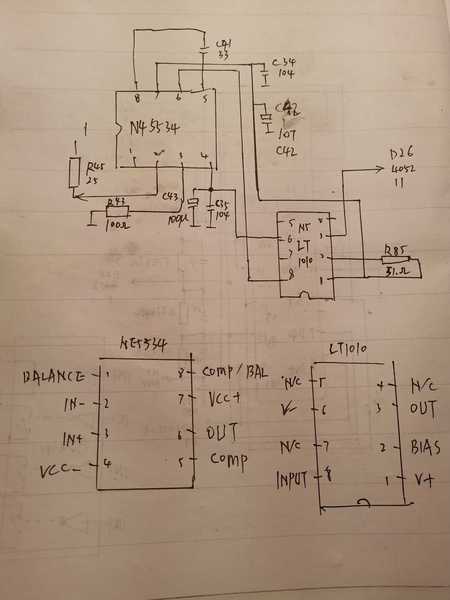 C41
33
C34
104
8 7 6 5
N45534
C42
107
C42
1 3 4
R45
25
R43
100Ω
C43
100μ
C35
104
D26
4052
11
5
6
7
8
NS
LT
1010
3
2
1
R85
31.Ω
NE5534
BALANCE 1
IN- 2
IN+ 3
VCC- 4
8 COMP/BAL
7 VCC+
6 OUT
5 COMP
LT1010
N/C 5
V- 6
N/C 7
INPUT 8
4 N/C
3 OUT
2 BIAS
1 V+